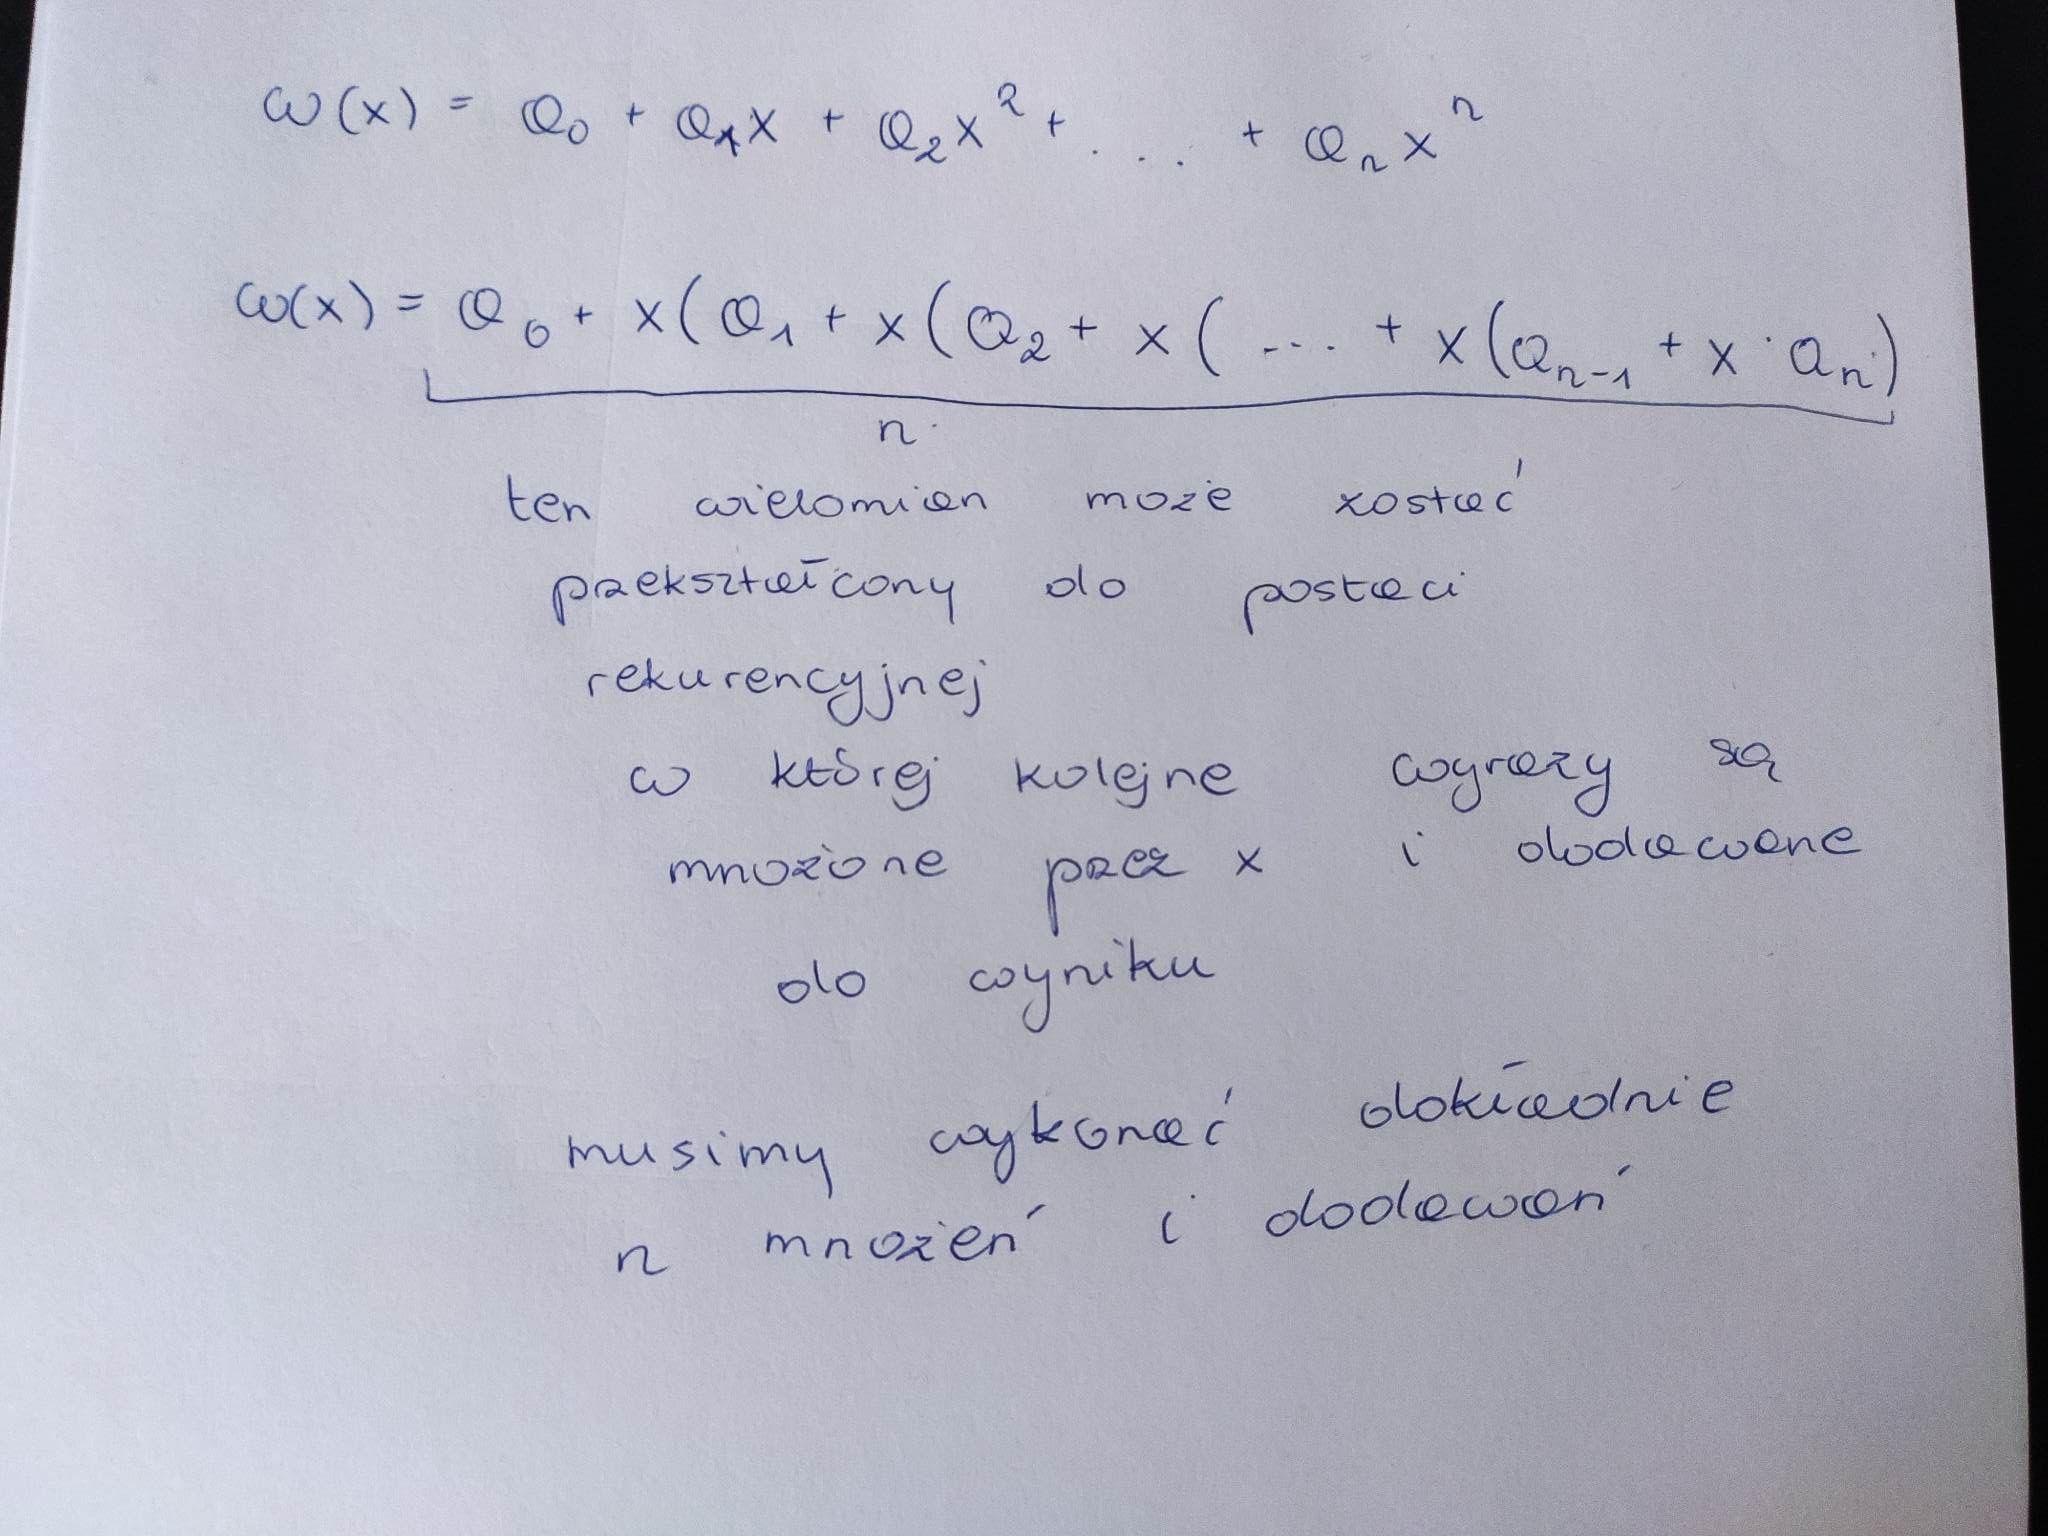 w(x) = a₀ + a₁x + a₂x² + .... + aₙxⁿ
w(x) = a₀ + x(a₁ + x(a₂ + x(... + x(aₙ₋₁ + x·aₙ)
n
ten wielomian może zostać
przekształcony do postaci
rekurencyjnej
w której kolejne wyrazy są
mnożone przez x i dodawane
do wyniku
musimy wykonać dokładnie
n mnożeń i dodawań